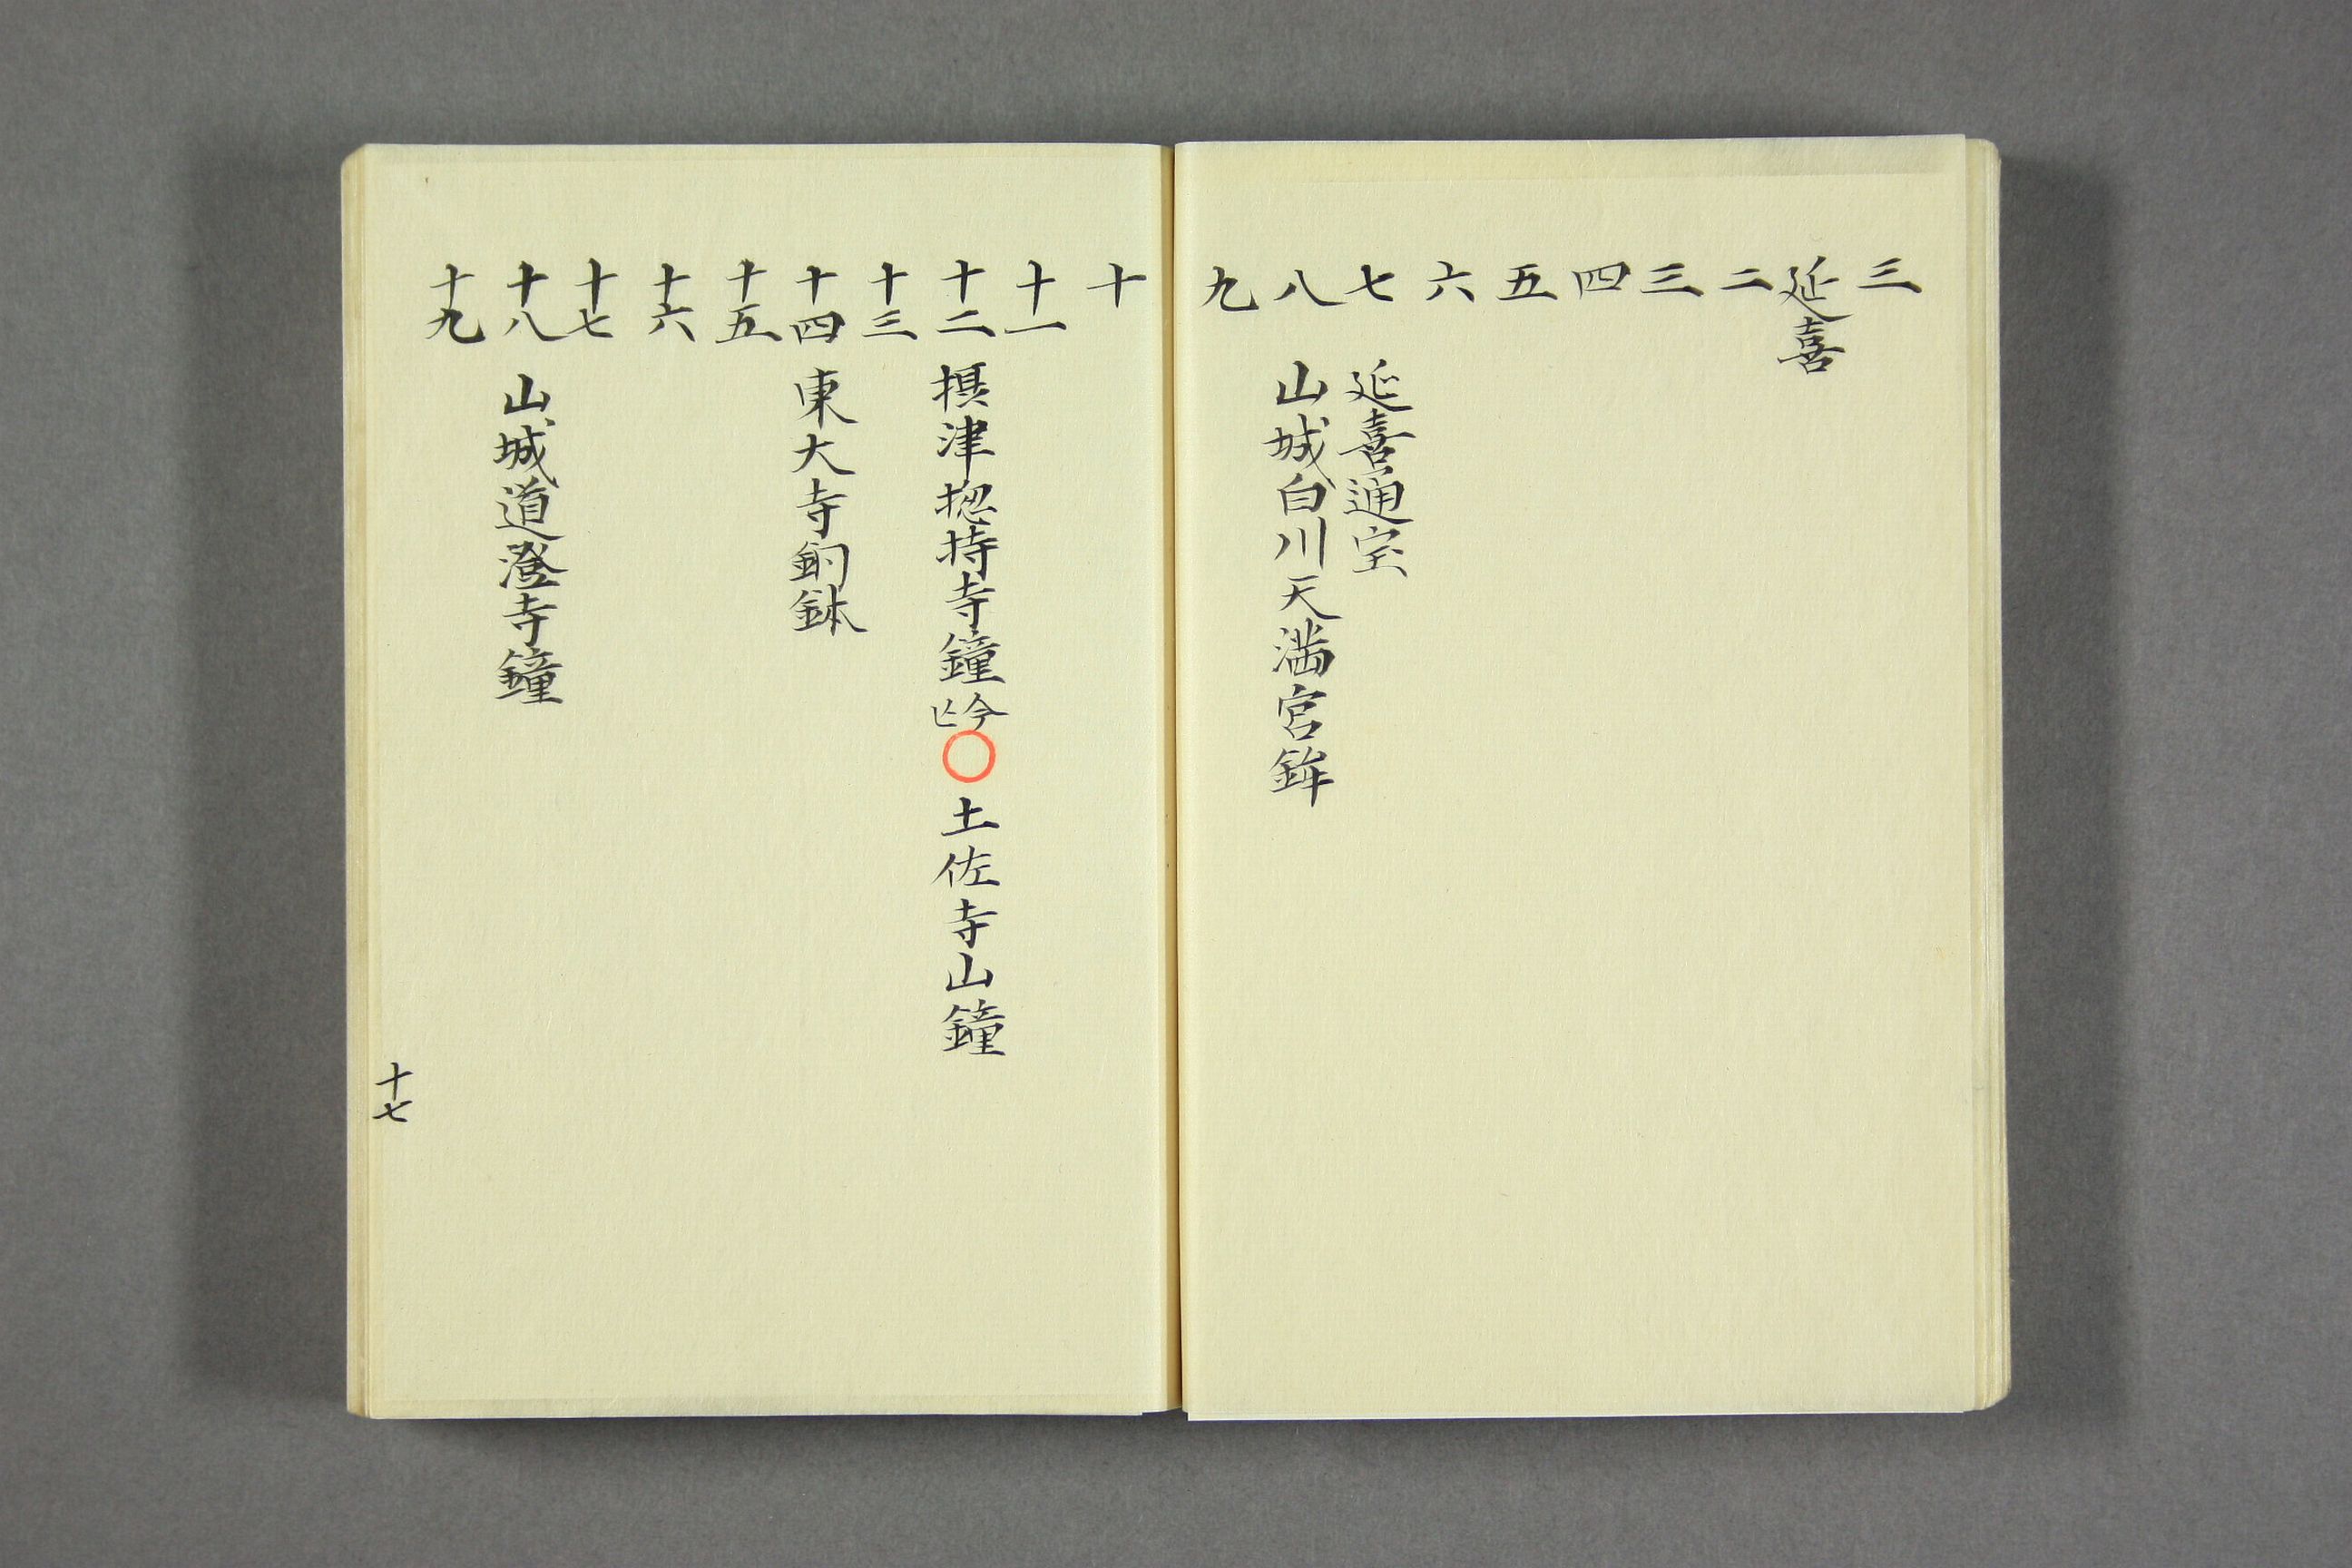 三
延喜
二
三
四
五
六
七 延喜通宝
八 山城白川天満宮鉾
九
十
十一
十二 摂津捴持寺鐘今亡〇 土佐寺山鐘
十三
十四 東大寺銅鉢
十五
十六
十七
十八 山城道澄寺鐘
十九
十七